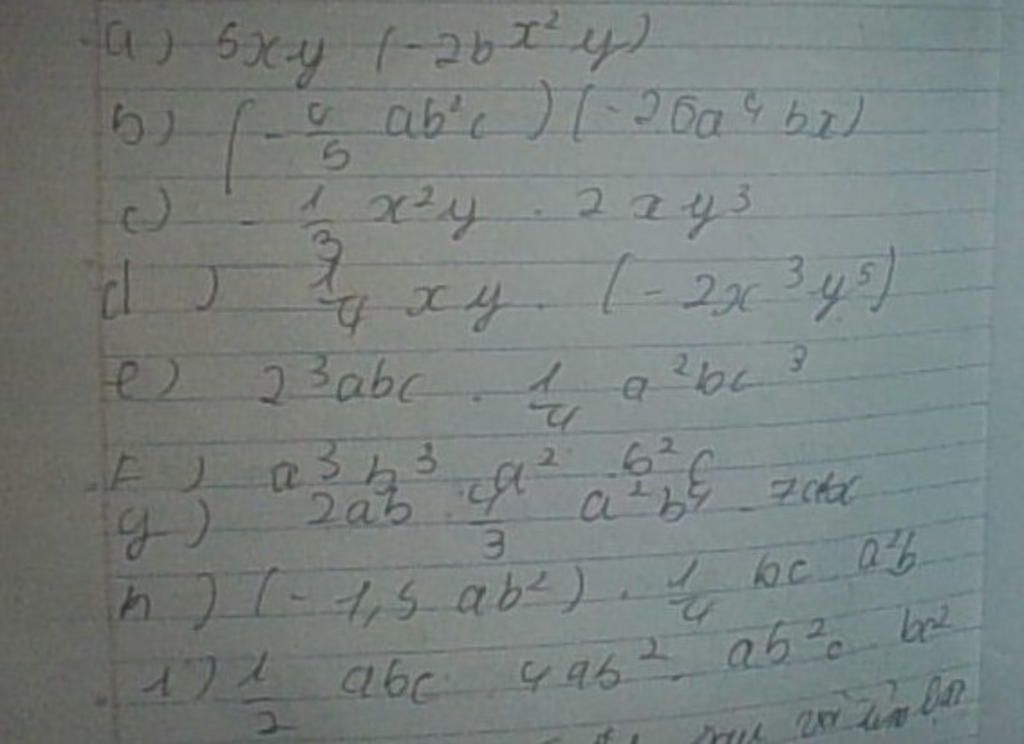 a) 5xy (-2bx²y)
b) (-4/5 ab²c) (-25a⁴bx)
c) -1/3 x²y . 2xy³
d) 1/4 xy . (-2x³y⁵)
e) 2³abc . 1/4 a²bc³
F) a³b³ . a² . b²c
g) 2ab . 4/3 a²b⁴ .
h) (-1,5 ab²) . 1/4 bc a²b
i) 1/2 abc . 4ab² . ab²c bc²